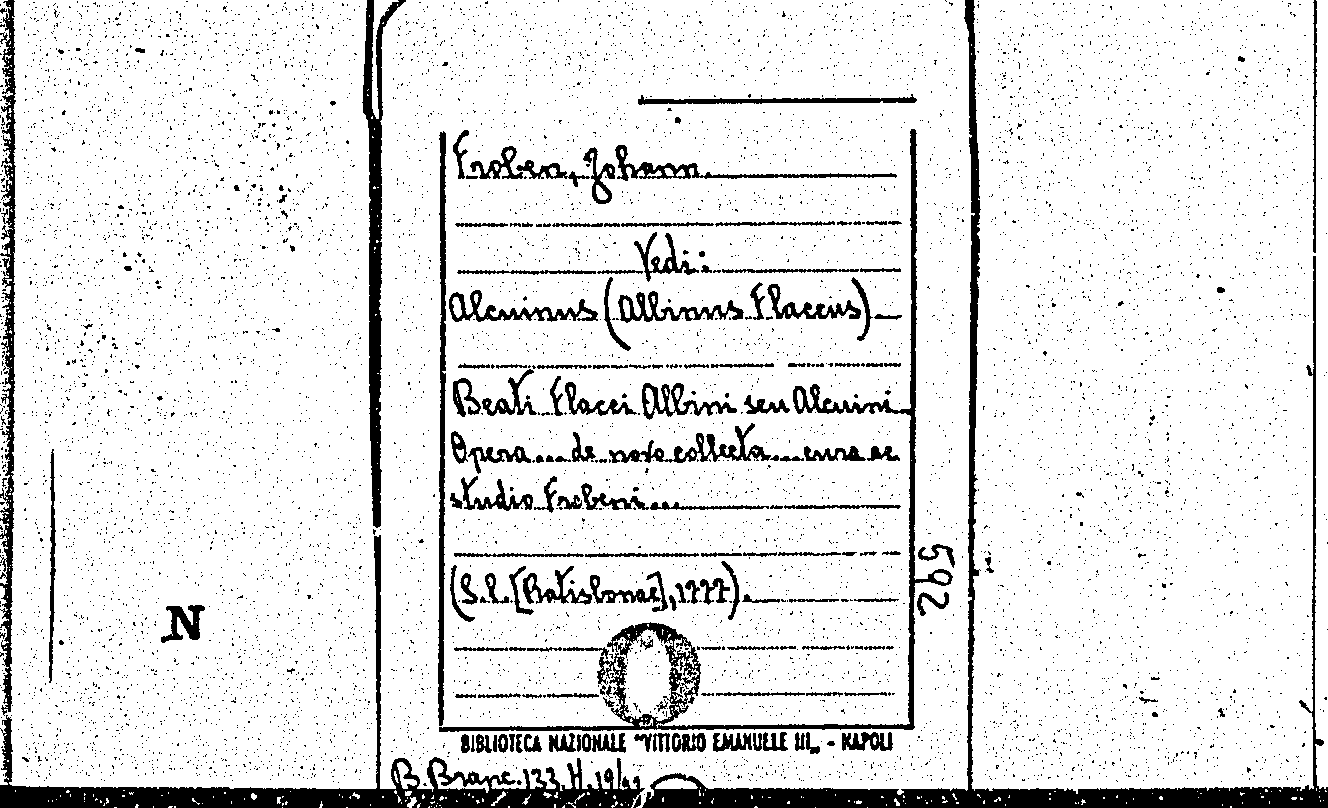 Froben, Johann.
Vedi:
Alcuinus (Albinus Flaccus)
Beati Flacci Albini seu Alcuini
Opera... de novo collecta... cura ac
studio Frobeni...
(S.l. [Ratisbonae], 1777).
592
N
BIBLIOTECA NAZIONALE "VITTORIO EMANUELE III„ - NAPOLI
B. Branc. 133. H. 19/